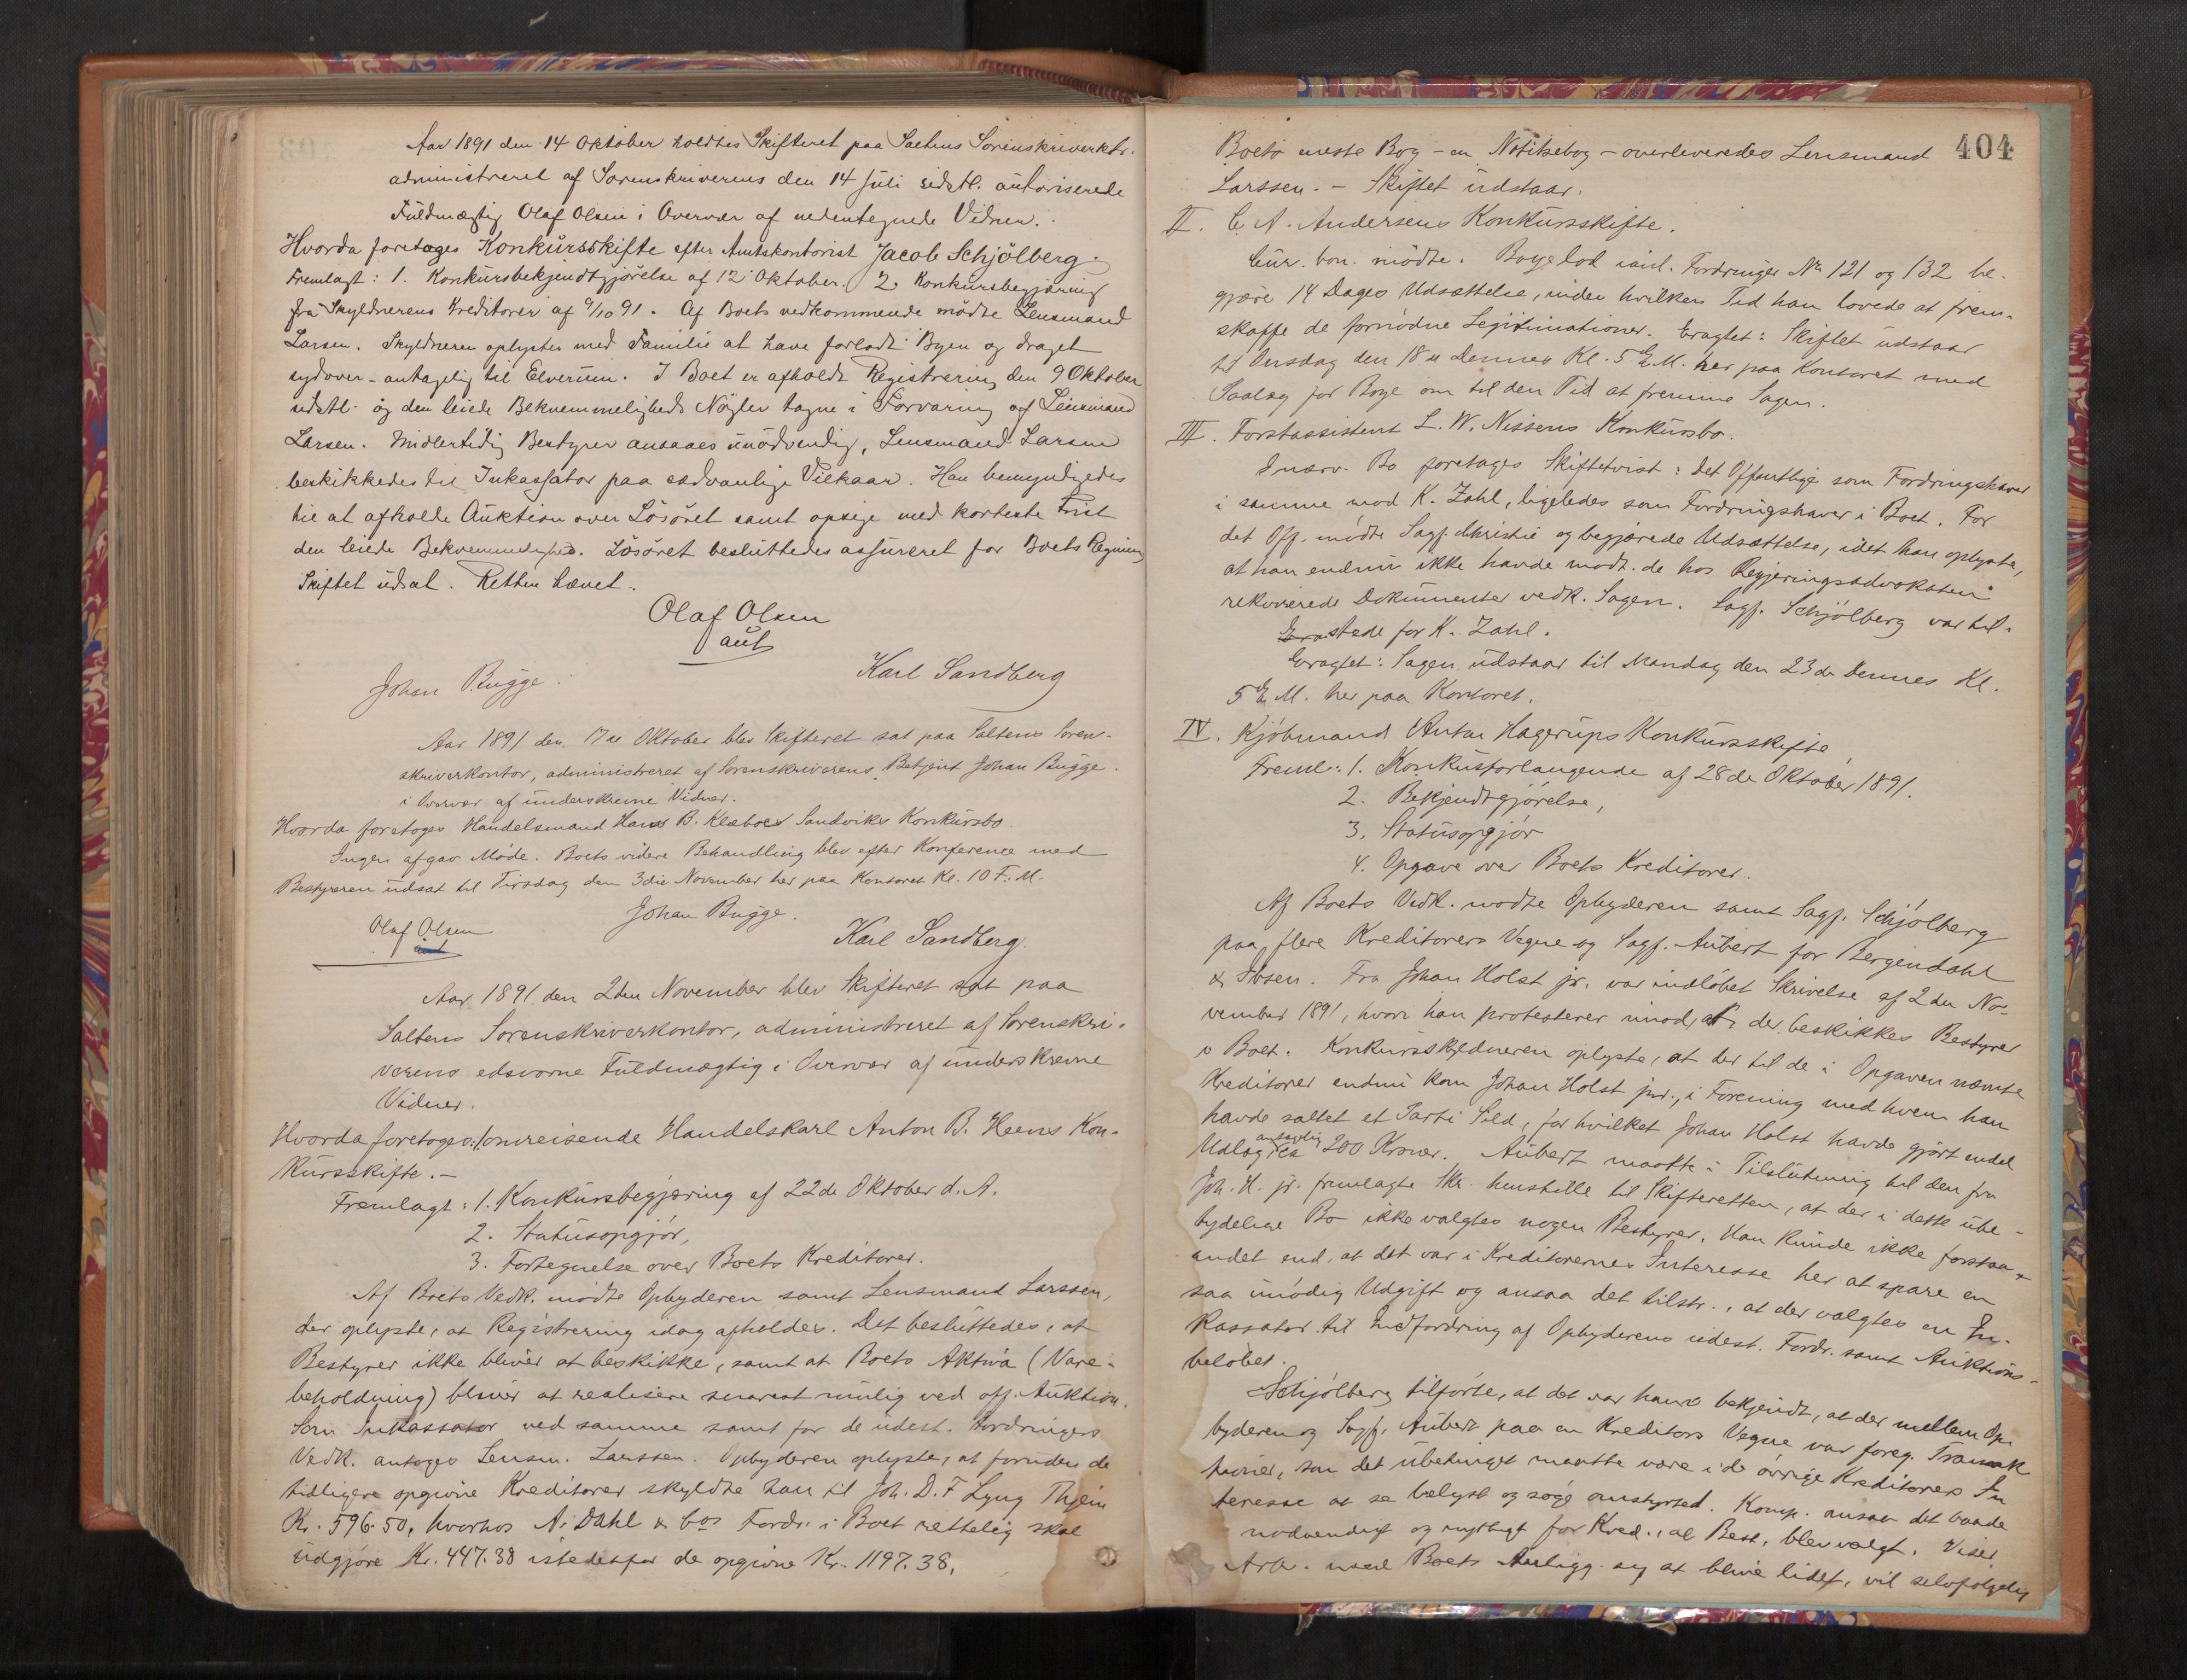 Aar 1891 den 14 Oktober holdtes Skifteret paa Saltens Sorenskriverktr.
administreret af Sorenskriverens den 14 Juli sidstl. autoriserede
Fuldmægtig Olaf Olsen i Overvær af nedentegnede Vidner.
Hvorda foretages Konkursskifte efter Amtskontorist Jacob Schjölberg.
Fremlagt: 1. Konkursbekjendtgjörelse af 12 Oktober. 2. Konkursbegjæring
fra Skyldnerens Kreditorer af 9/10 91. Af Boets vedkommende mödte Lensmand
Larsen. Skyldneren oplystes med Familie at have forladt Byen og draget
sydover - antagelig til Elverum. I Boet er afholdt Registrering den 9 Oktober
sidstl. og den leiede Bekvemmeligheds Nögler tagne i Forvaring af Lensmand
Larsen. Midlertidig Bestyrer ansaaes unödvendig, Lensmand Larsen
beskikkedes til Inkassator paa sædvanlige Vilkaar. Han bemyndigedes
til at afholde Auktion over Lösöret samt opsige med korteste Frist
den leiede Bekvemmelighed. Lösöret besluttedes assureret for Boets Regning
Skiftet udsat. Retten hævet.
Olaf Olsen
aut
Johan Bugge.
Karl Sandberg
Aar 1891 den 17de Oktober blev Skifteret sat paa Saltens Soren-
skriverkontor, administreret af Sorenskriverens Betjent Johan Bugge.
i Overvær af underskrevne Vidner.
Hvorda foretoges Handelsmand Hans B. Klæboes Sandviks Konkursbo.
Ingen afgav Möde. Boets videre Behandling blev efter Konference med
Bestyreren udsat til Tirsdag den 3die November her paa Kontoret Kl. 10 F.M.
Johan Bugge.
Olaf Olsen
aut
Karl Sandberg.
Aar 1891 den 2den November blev Skifteret sat paa
Saltens Sorenskriverkontor, administreret af Sorenskri-
verens edsvorne Fuldmægtig i Overvær af underskrevne
Vidner.
Hvorda foretoges: omreisende Handelskarl Anton B. Heens Kon-
kursskifte.-
Fremlagt: 1. Konkursbegjæring af 22de Oktober d.A.
2. Statusopgjör,
3. Fortegnelse over Boets Kreditorer.
Af Boets Vedk. mödte Opbyderen samt Lensmand Larssen,
der oplyste, at Registrering idag afholdes. Det besluttedes, at
Bestyrer ikke bliver at beskikke, samt at Boets Aktiva (Vare-
beholdning) bliver at realisere snarest mulig ved off. Auktion.
Som Inkassator ved samme samt for de udest. Fordringers
Vedk. antoges Lensm. Larssen. Opbyderen oplyste, at foruden de
tidligere opgivne Kreditorer skyldte han til Joh. D. F Lyng Thjem
Kr. 596.50, hvorhos A. Dahl & Cos Fordr. i Boet rettelig skal
udgjöre Kr. 447.38 istedetfor de opgivne Kr. 1197.38.
404
Boets eneste Bog - en Notitsebog - overleveredes Lensmand
Larssen. - Skiftet udstaar.
II. C. A. Andersens Konkursskifte.
Cur. bon. mödte. Boye lod anl. Fordringer No. 121 og 132 be-
gjære 14 Dages Udsættelse, inden hvilken Tid han lovede at frem-
skaffe de fornödne Legitimationer. Eragtet: Skiftet udstaar
til Onsdag den 18de Dennes Kl. 5 E.M. her paa Kontoret med
Paalæg for Boye om til den Tid at fremme Sagen.
III. Forstassistent L. W. Nissens Konkursbo.
I nærv. Bo foretages Skiftetvist: det Offentlige som Fordringshaver
i samme mod K. Zahl, ligeledes som Fordringshaver i Boet. For
det Off. mödte Sagf. Christie og begjærede Udsættelse, idet han oplyste,
at han endnu ikke havde modt. de hos Regjeringsadvokaten
rekvirerede Dokumenter vedk. Sagen. Sagf. Schjölberg var til-
stede for K. Zahl.
Eragtet: Sagen udstaar til Mandag den 23de Dennes Kl.
5 E.M. her paa Kontoret.
IV. Kjöbmand Anton Hagerups Konkursskifte,
Freml: 1. Konkursforlangende af 28de Oktober 1891.
2. Bekjendtgjörelse,
3. Statusopgjör
4. Opgave over Boets Kreditorer.
Af Boets Vedk. mödte Opbyderen samt Sagf. Schjölberg
paa flere Kreditorers Vegne og Sagf. Aubert for Bergendahl
& Ibsen. Fra Johan Holst jr. var indlöbet Skrivelse af 2den No-
vember 1891, hvori han protesterer imod, at der beskikkes Bestyrer
i Boet. Konkursskyldneren oplyste, at der til de i Opgaven nævnte
Kreditorer endnu kom Johan Holst jnr., i Forening med hvem han
havde saltet et Parti Sild, for hvilket Johan Holst havde gjört endel
Udlæg ca 200 Kroner. Aubert maatte i Tilslutning til den fra
Joh. H. jr. fremlagte Skr. henstille til Skifteretten, at der i dette ube-
tydelige Bo ikke valgtes nogen Bestyrer. Han kunde ikke forstaa
andet end, at det var i Kreditorernes Interesse her at spare en
saa unödig Udgift og ansaa det tilstr., at der valgtes en In-
kassator til Indfordring af Opbyderens udest. Fordr. samt Auktions-
belöbet.
Schjölberg tilförte, at det var ham bekjendt, at der mellem Op-
byderen og Sagf. Aubert paa en Kreditors Vegne var foreg. Transak
tioner, som det ubetinget maatte være i de övrige Kreditorers In
teresse at se belyst og söge omstyrted. Komp. ansaa det baade
nödvendigt og nyttigt for Kred., at Best. blev valgt. Viser
Arb. med Boets Anligg. sig at blive lidet, vil selvfölgelig